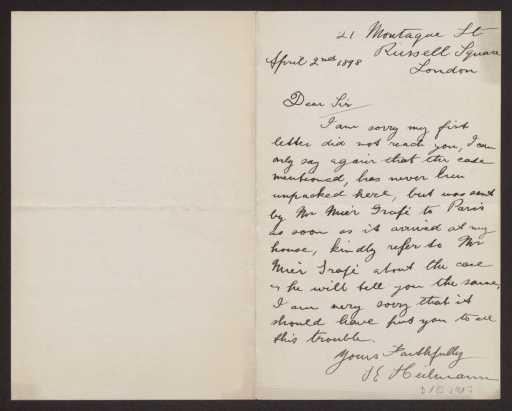 21 Montague St
Russell Square
London
April 2nd 1898
Dear Sir
I am sorry my first
letter did not reach you, I can
only say again that the case
mentioned, has never been
unpacked here, but was sent
by Mr Meier Grafé to Paris
as soon as it arrived at my
house, kindly refer to Mr
Meier Grafé about the case
& he will tell you the same,
I am very sorry that it
should have put you to all
this trouble.
Yours Faithfully
E Heilmann